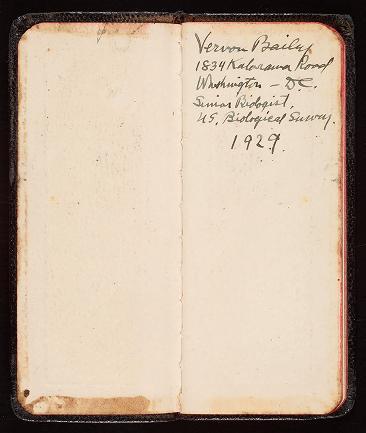 Vernon Bailey
1834 Kalorama Road
Washington - DC.
Senior Biologist,
US. Biological Survey.
1929.